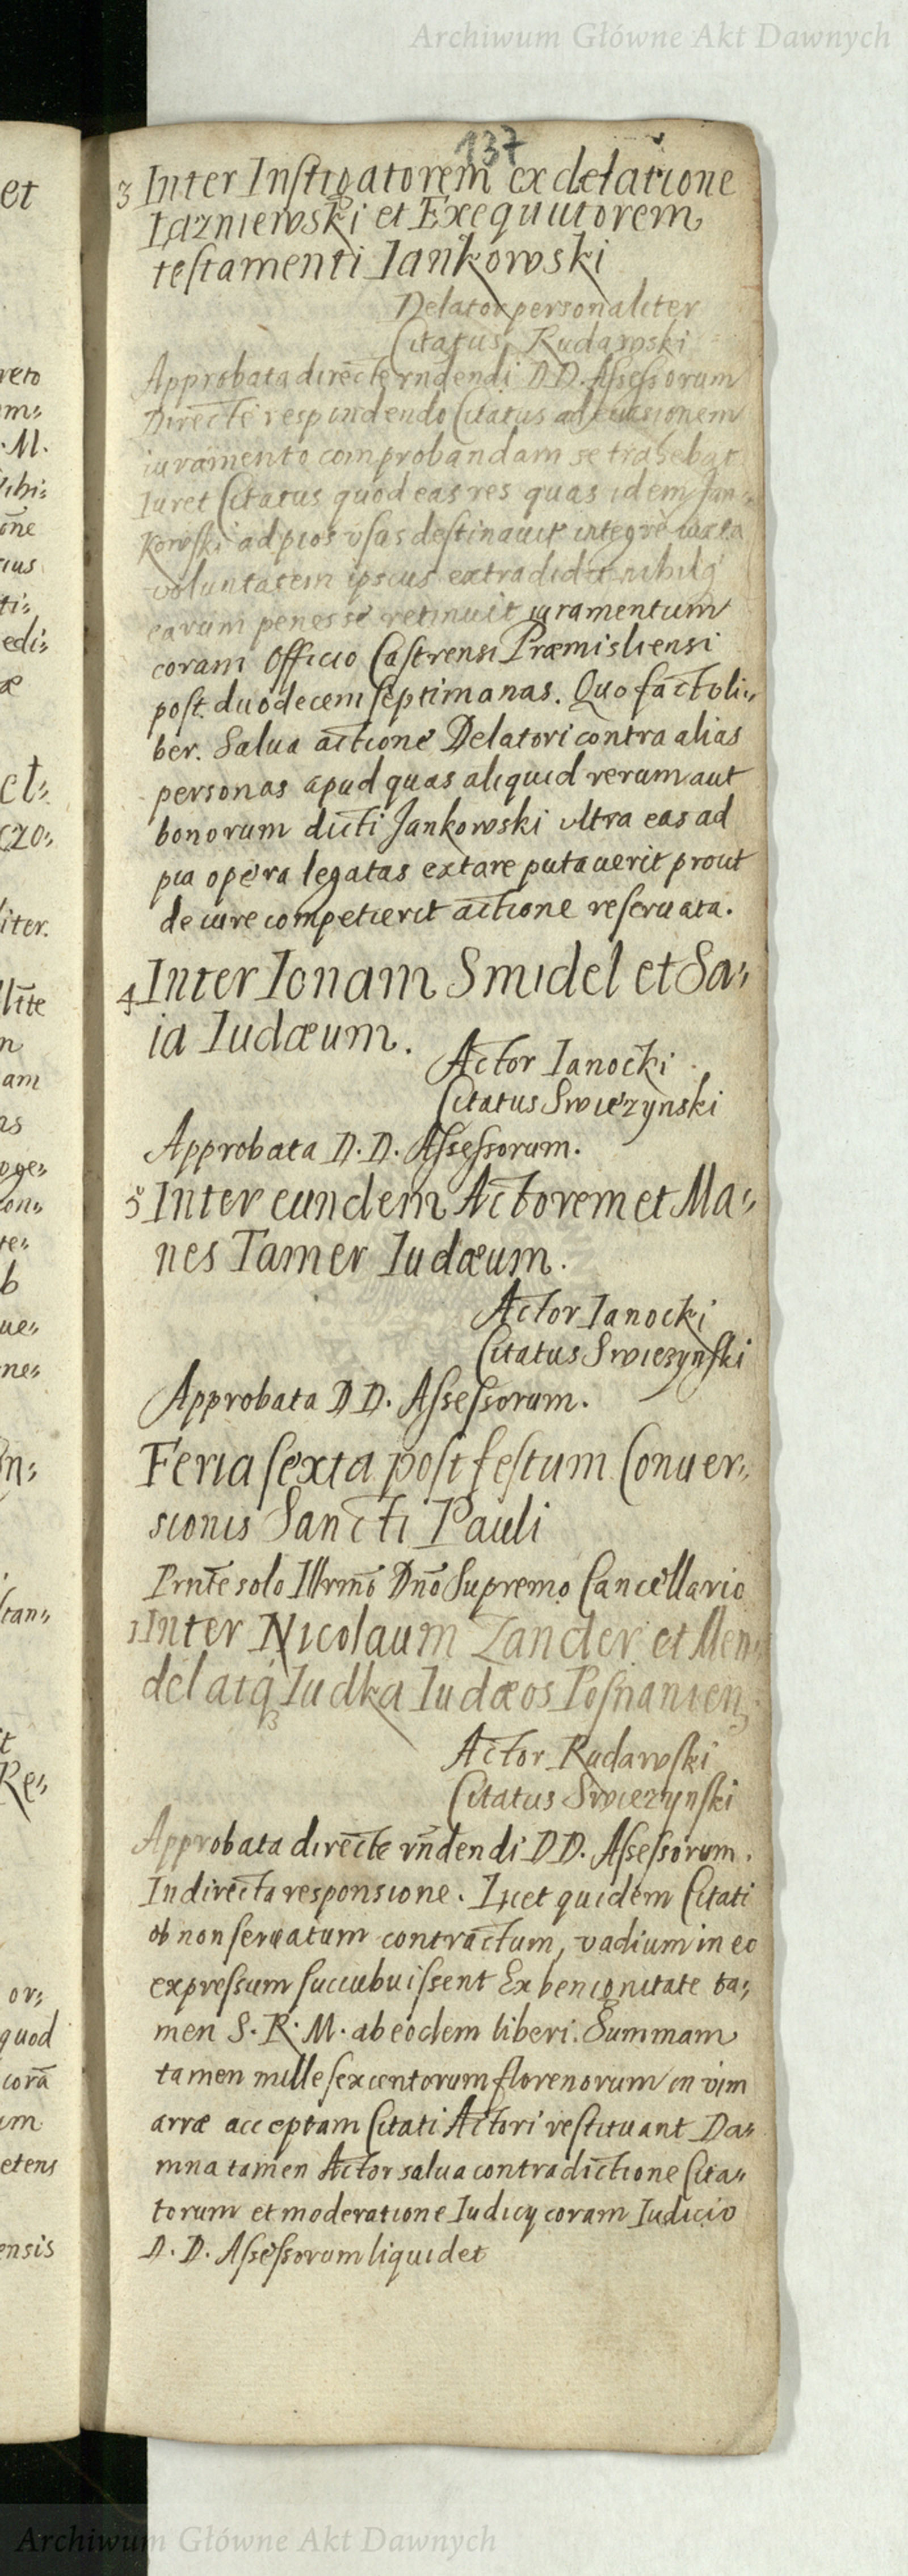 Archiwum Główne Akt Dawnych
137
3 Inter Instigatorem ex delatione
Iazniewski et Exequutorem
testamenti Iankowski
Delator personaliter
Citatus Rudawski
Approbata directe rndendi D D. Assessorum
Directe respondendo Citatus ad evasionem
iuramento comprobandam se trahebat
Iuret Citatus quod eas res quas idem Jan„
kowski ad pios usas destinauit integre iuxta
voluntatem ipsius extradidit nihilq
earum penes se retinuit iuramentum
coram Officio Castrensi Præmisliensi
post duodecem septimanas. Quo facto li„
ber. Salua actione Delatori contra alias
personas apud quas aliquid rerum aut
bonorum dicti Jankowski ultra eas ad
pia opera legatas extare putauerit prout
de iure competierit actione reseruata.
4 Inter Ionam Smidel et Sa„
ia Iudæum.
Actor Ianocki
Citatus Swiezynski
Approbata D. D. Assessorum.
5 Inter eundem Actorem et Ma„
nes Tamer Iudæum.
Actor Ianocki
Citatus Swiezynski
Approbata D D. Assessorum.
Feria sexta post festum Conuer„
sionis Sancti Pauli
Prnte solo Illrmo Dno Supremo Cancellario
1 Inter Nicolaum Zander et Men„
del atq Iudka Iudæos Posnanien
Actor Rudawski
Citatus Swiezynski
Approbata directe rndendi D D. Assessorum.
Indirecta responsione. Licet quidem Citati
ob non seruatum contractum, vadium in eo
expressum succubuissent Ex benignitate ta„
men S. R. M. ab eodem liberi. Summam
tamen mille sexcentorum florenorum in vim
arræ acceptam Citati Actori restituant Da„
mna tamen Actor salua contradictione Cita„
torum et moderatione Iudicy coram Iudicio
D. D. Assessorum liquidet
Archiwum Główne Akt Dawnych